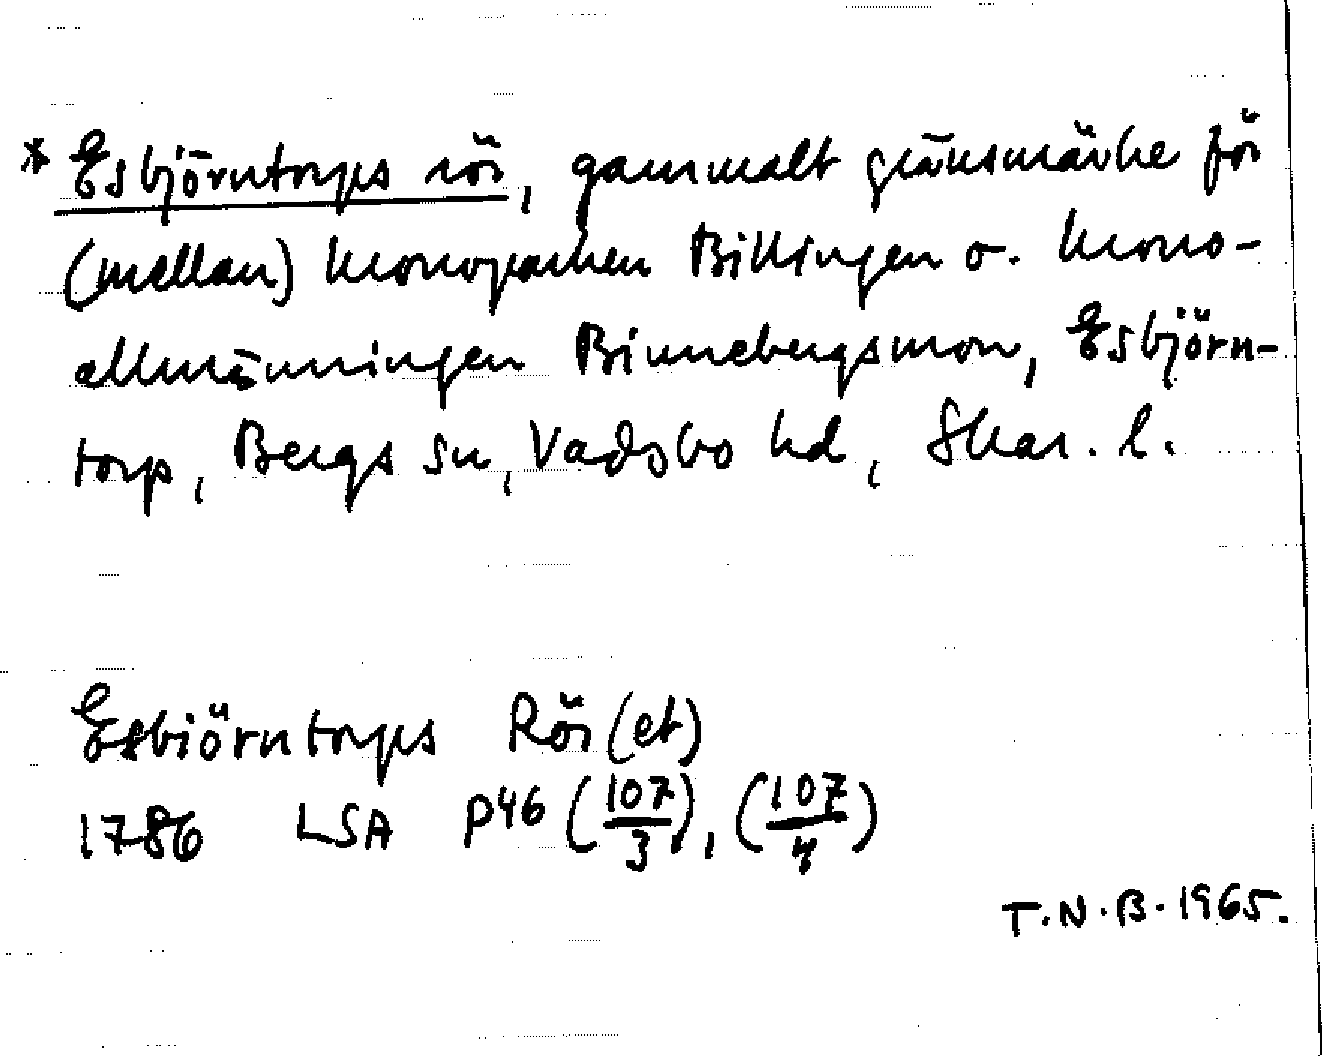 * Esbjörntorps rör, gammalt gränsmärke för
(mellan) kronoparken Billingen o. krono-
allmänningen Binnebergsmon, Esbjörn-
torp, Bergs sn, Vadsbo hd, Skar. l.
Esbiörntorps Rör(et)
1786 LSA P46 (107/3), (107/4)
T.N.B. 1965.